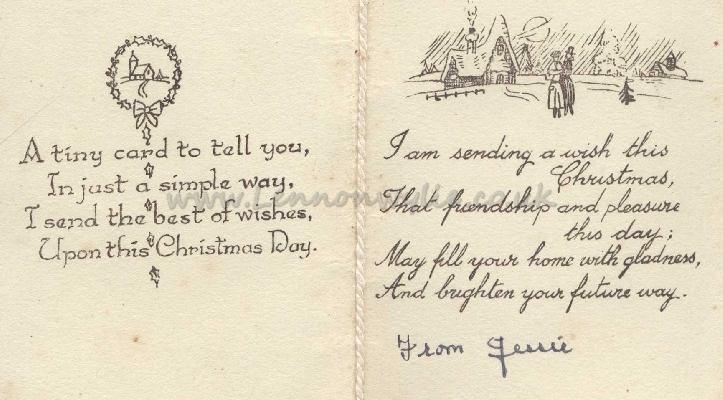 A tiny card to tell you,
In just a simple way,
I send the best of wishes,
Upon this Christmas Day.
I am sending a wish this
Christmas,
That friendship and pleasure
this day;
May fill your home with gladness,
And brighten your future way.
From Jessie